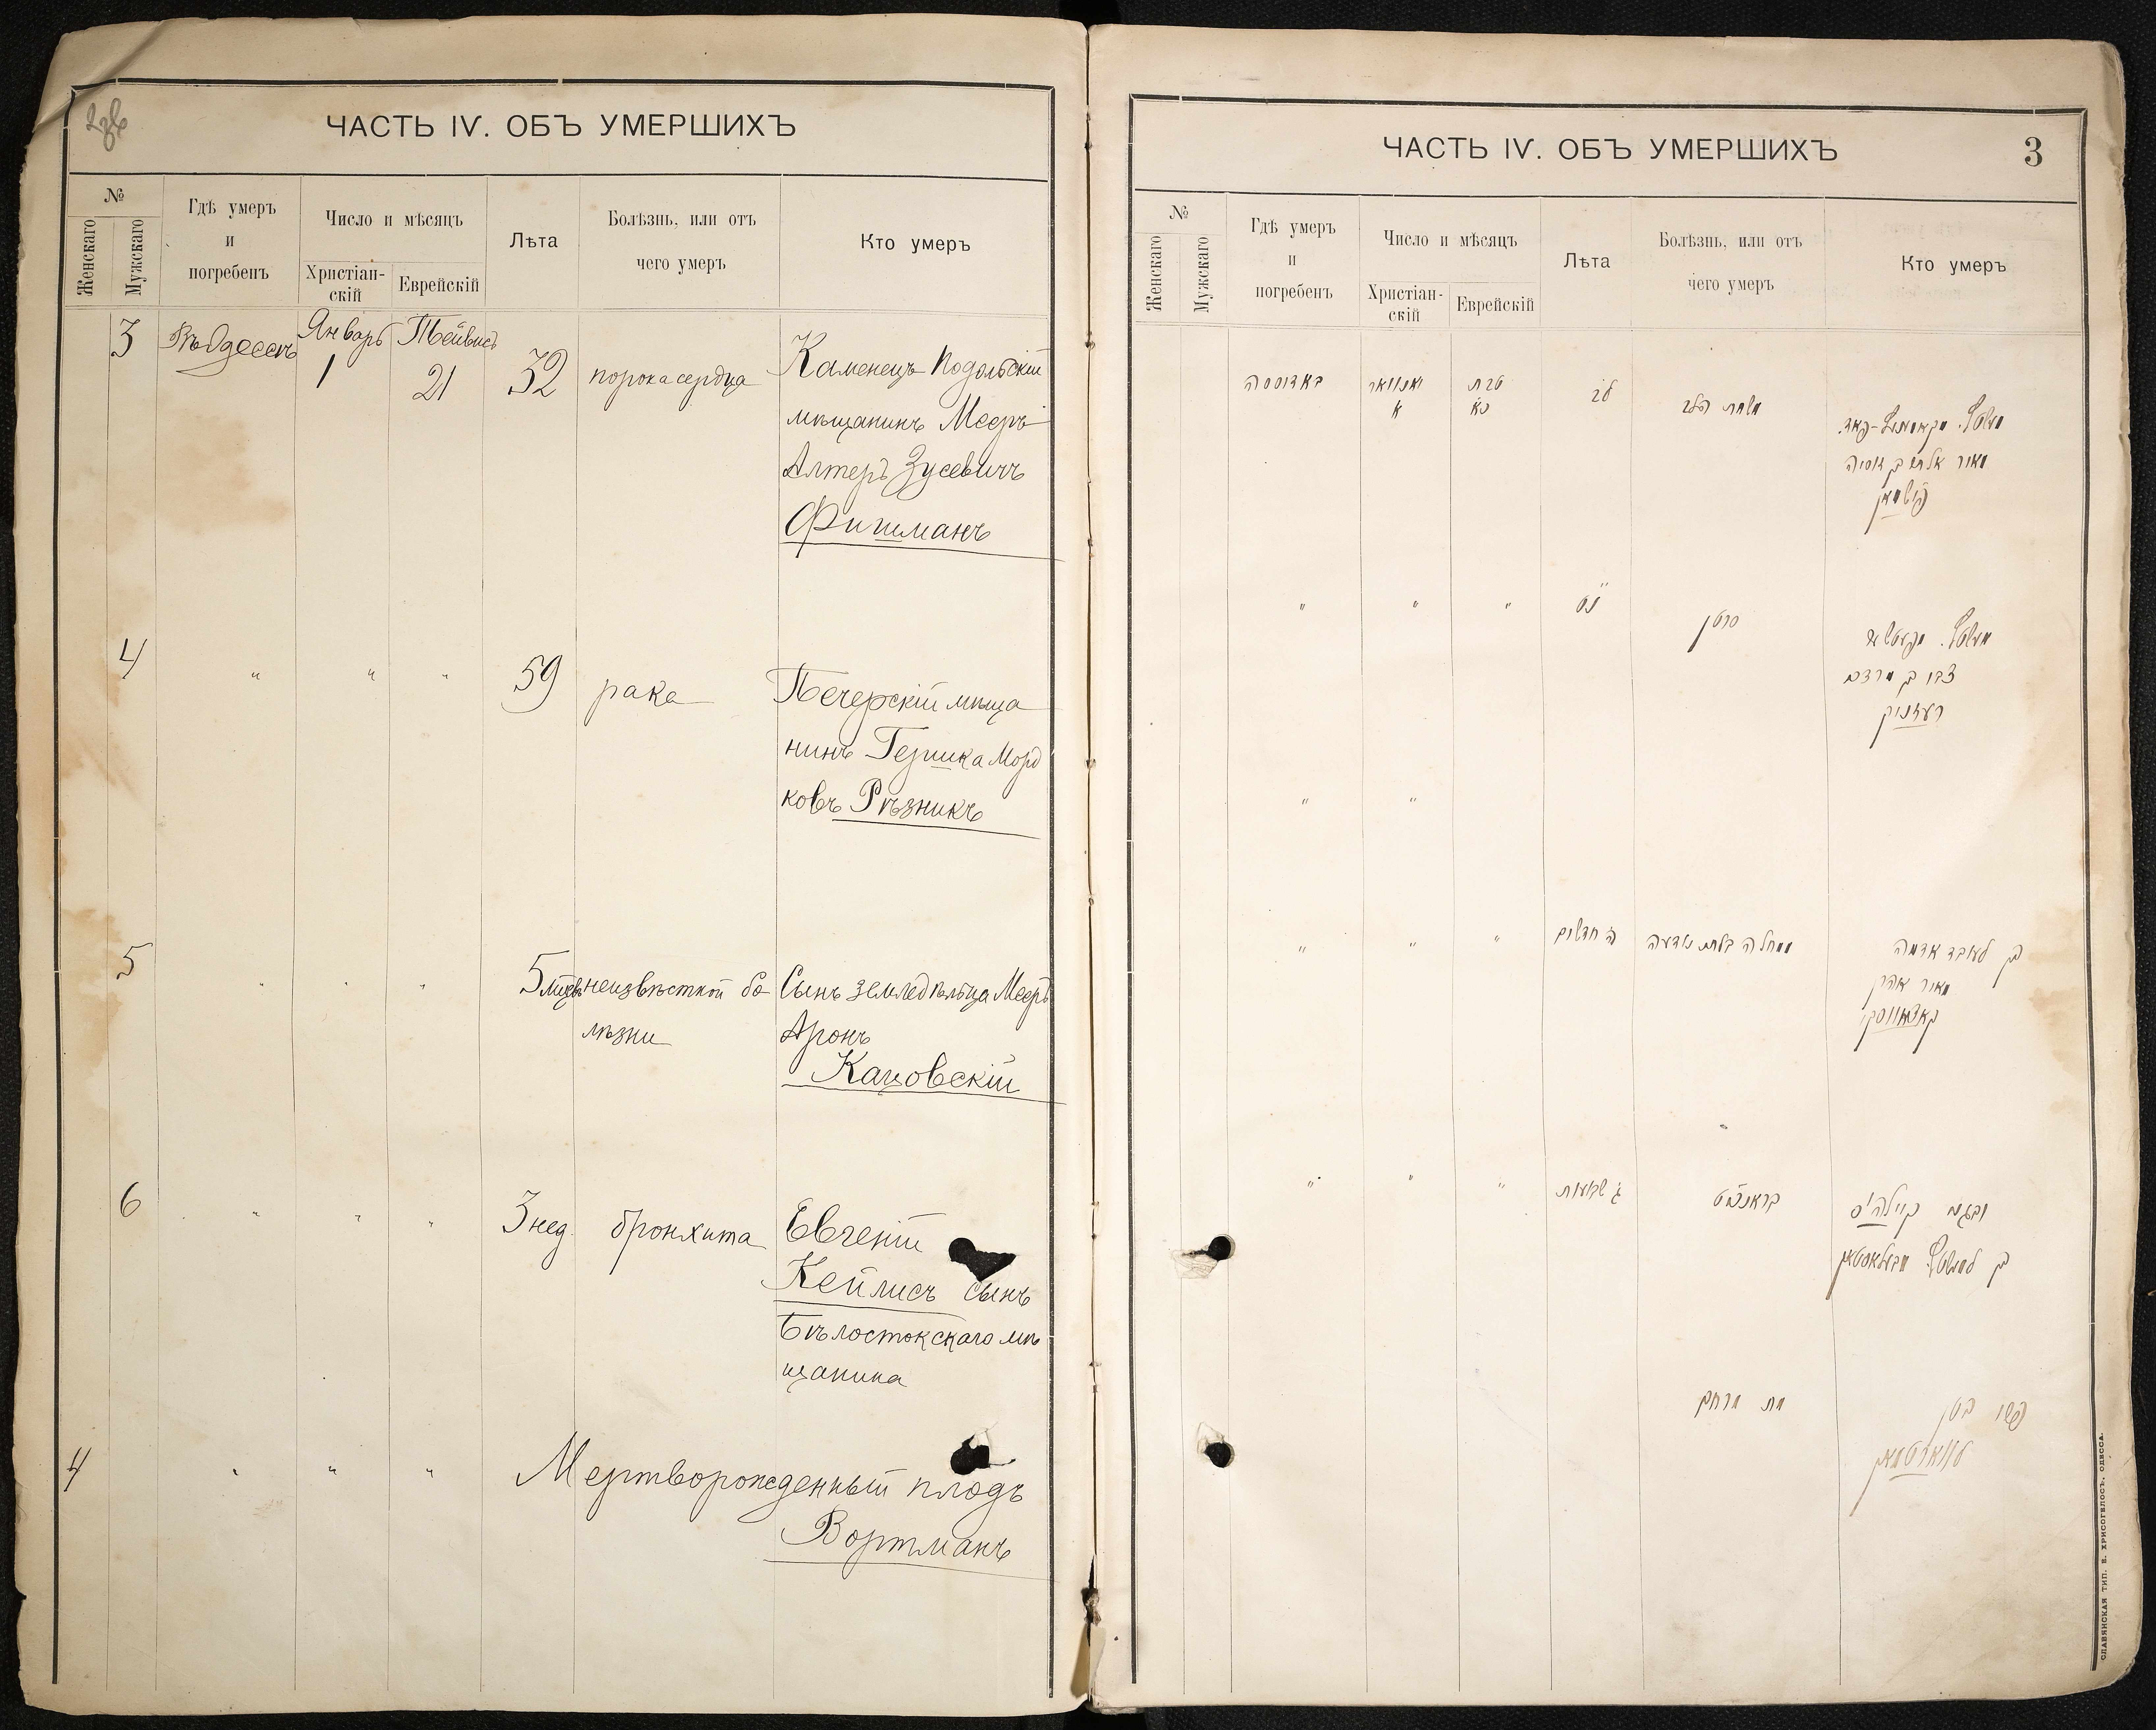 ЧАСТЬ IV. ОБЪ УМЕРШИХЪ
№
Женскаго
Мужскаго
Гдѣ умеръ
и
погребенъ
Число и мѣсяцъ
Христіан-
скій
Еврейскій
Лѣта
Болѣзнь, или отъ
чего умеръ
Кто умеръ
3
Въ Одессѣ
Январь
1
Тейвисъ
21
32
порока сердца
Каменецъ Подольскій
мѣщанинъ Мееръ
Алтеръ Зусевичъ
Фишманъ
4 " " " 59 рака
Печерскій мѣща
нинъ Гершка Морд
ковъ Рѣзникъ
5 " " " 5 мѣсяц неизвѣстной бо
лѣзни
Сынъ земледѣльца Мееръ
Аронъ
Кацовскій
6 " " " 3 нед. бронхита
Евгеній
Кейлисъ сынъ
Бѣлостокскаго мѣ
щанина
4 " " "
Мертворожденный плодъ
Вортманъ
ЧАСТЬ IV. ОБЪ УМЕРШИХЪ
3
№
Женскаго
Мужскаго
Гдѣ умеръ
и
погребенъ
Число и мѣсяцъ
Христіан-
скій
Еврейскій
Лѣта
Болѣзнь, или отъ
чего умеръ
Кто умеръ
באדוססה
יאנוואר
א
טבת
כא
לב
מחלת הלב
מאיר אלתר בן זוסיה
פישמאן
" " " נט
סרטן
צבי בן מרדכי
רעזניק
" "
" " " ה חדשים
מחלה בלתי נודעה
בן לעובד אדמה
מאיר אהרן
קאצאווסקי
" " " ג שבועות
בראנכיט
קיילה'ס
בן
מת מרחם
פרי בטן
ווארטמאן
СЛАВЯНСКАЯ ТИП. Е. ХРИСОГЕЛОСЪ, ОДЕССА.